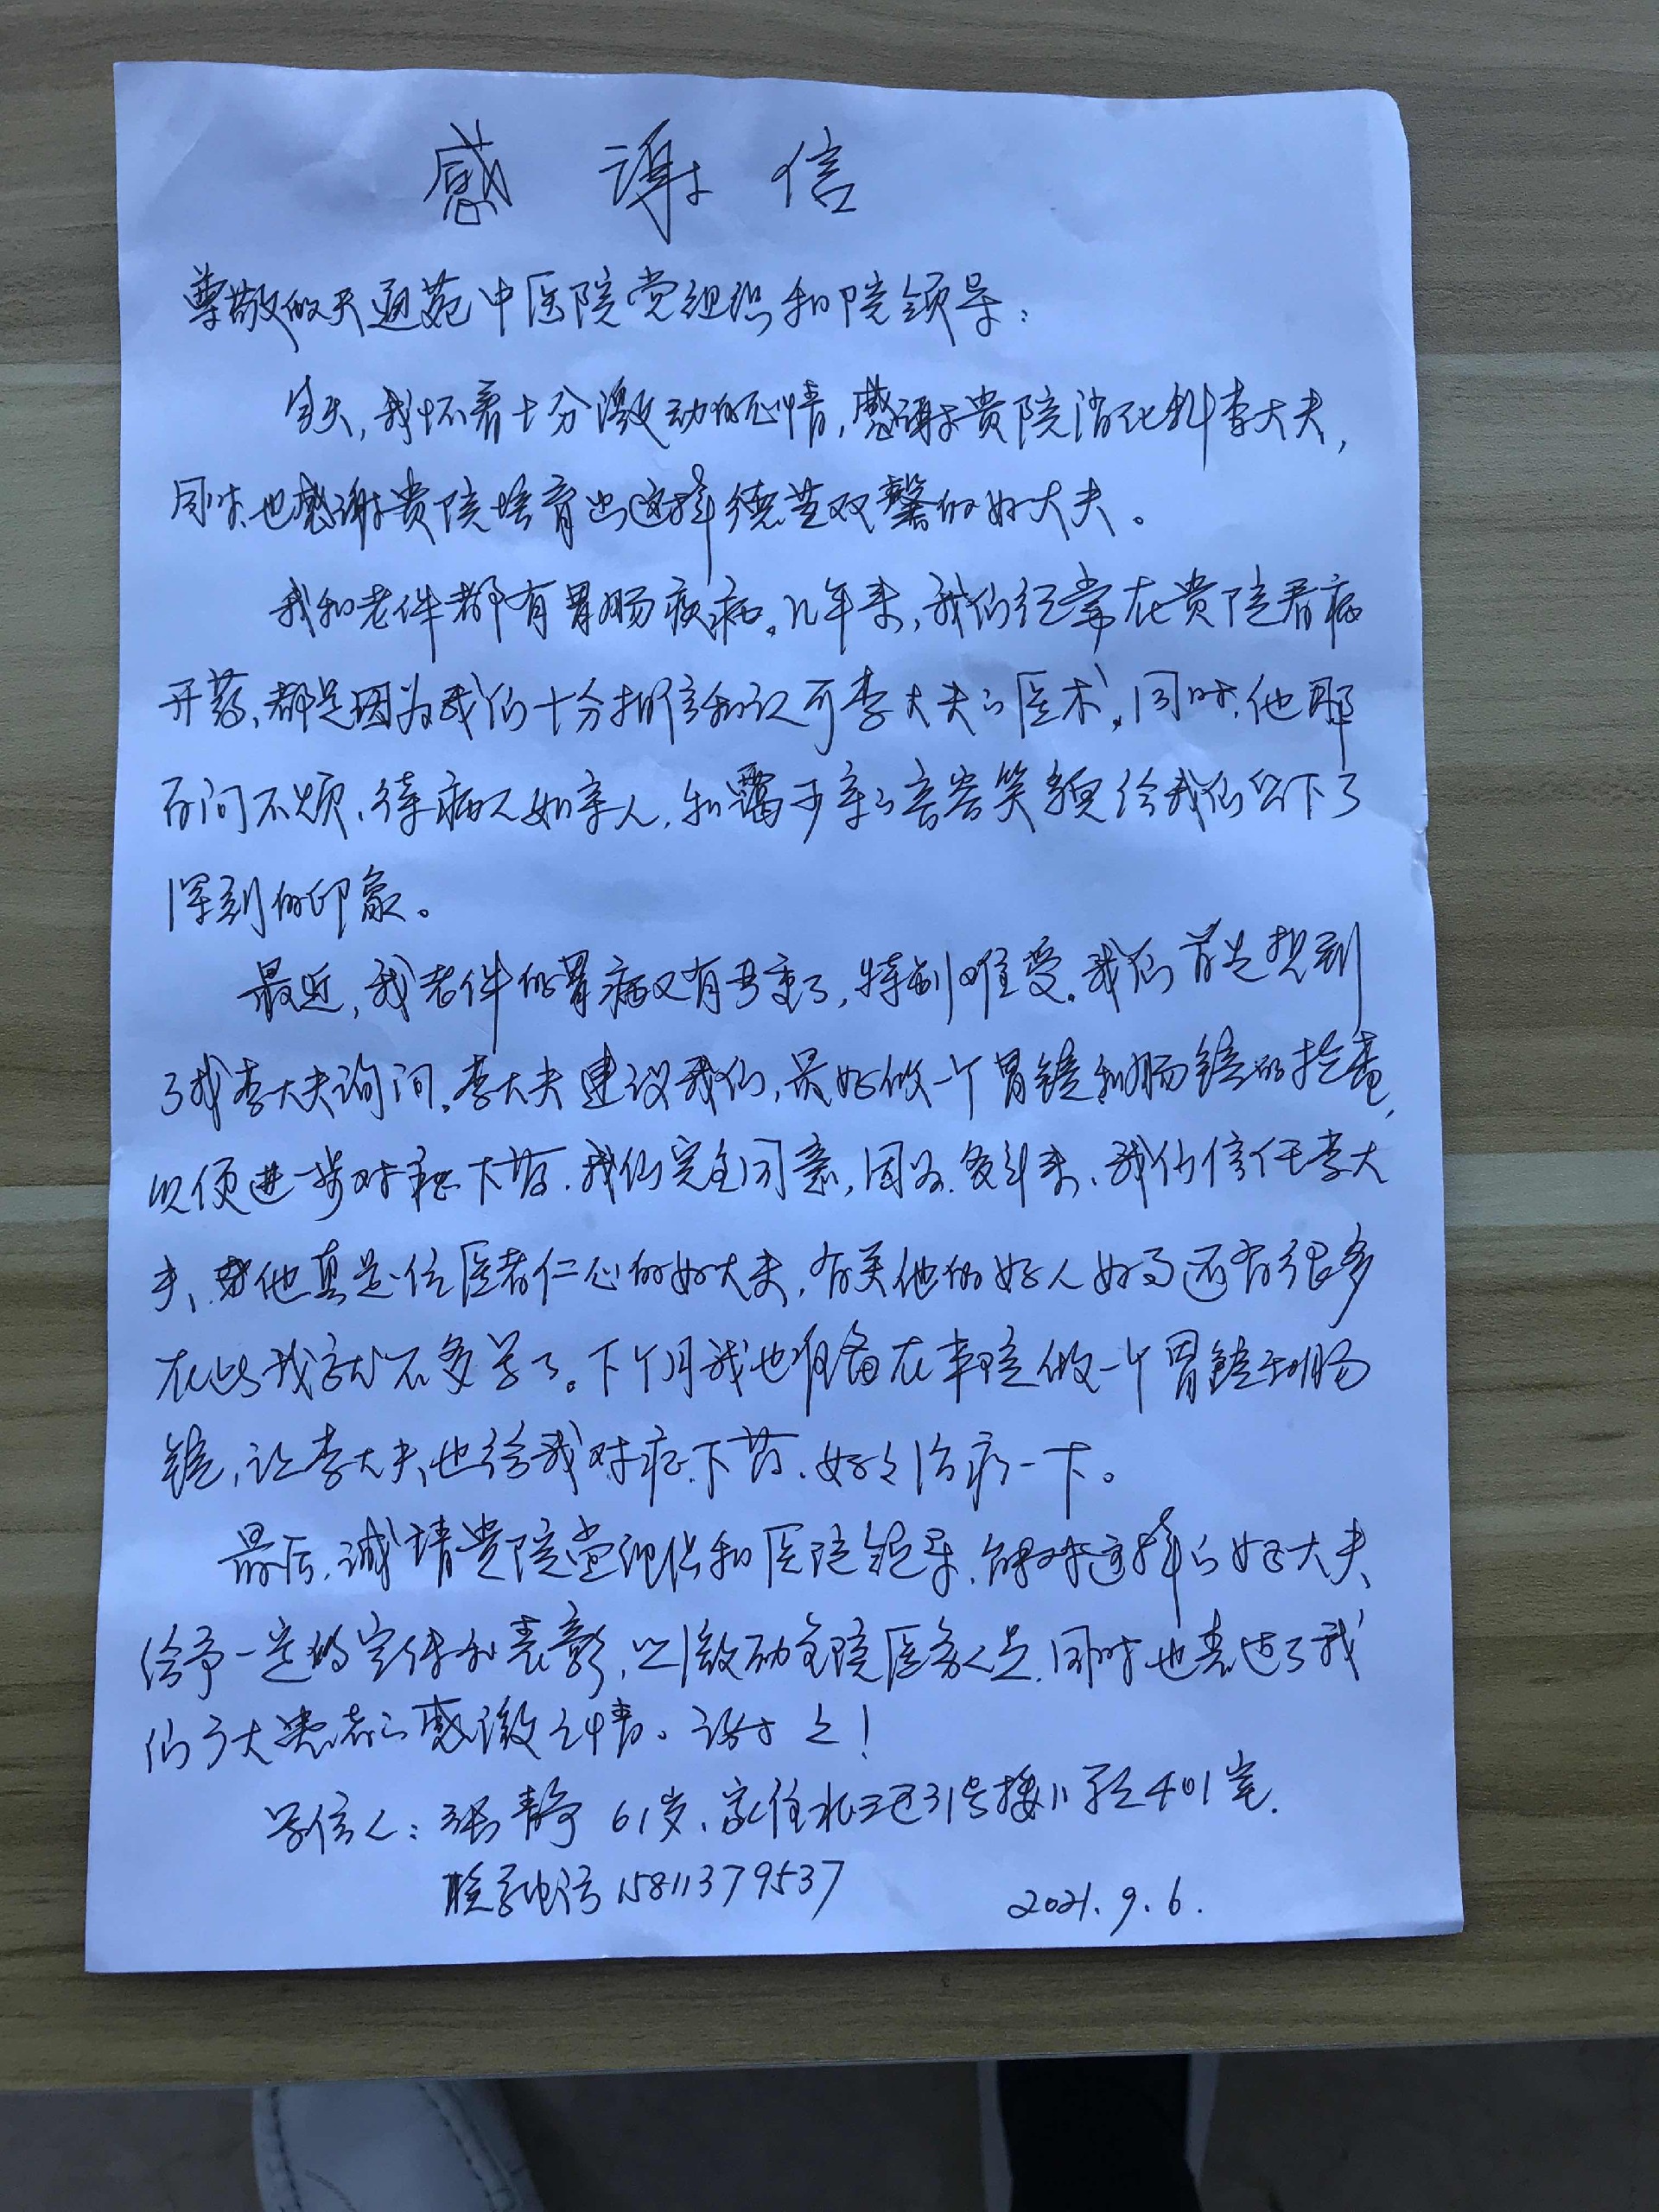 感谢信
尊敬的天通苑中医院党组织和院领导：
今天，我怀着十分激动的心情，感谢贵院消化科李大夫，
同时也感谢贵院培育出这样德艺双馨的好大夫。
我和老伴都有胃肠疾病。几年来，我们经常在贵院看病
开药，都是因为我们十分相信和认可李大夫的医术，同时，他那
百问不烦，待病人如亲人，和蔼可亲的音容笑貌给我们留下了
深刻的印象。
最近，我老伴的胃病又有加重了，特别难受。我们首先想到
了找李大夫询问。李大夫建议我们，最好做一个胃镜和肠镜的检查，
以便进一步对症下药，我们完全同意，因为，多年来，我们信任李大
夫、他真是位医者仁心的好大夫，有关他的好人好事还有很多
在此我就不多写了。下个月我也准备在本院做一个胃镜和肠
镜，让李大夫也给我对症下药，好好治疗一下。
最后，诚请贵院党组织和医院领导，能对这样的好大夫
给予一定的宣传和表彰，以激励全院医务人员，同时也表达了我
们广大患者的感激之情。谢谢！
写信人：张静 61岁，家住北三区31号楼11单元401室.
联系电话15811379537
2021.9.6.